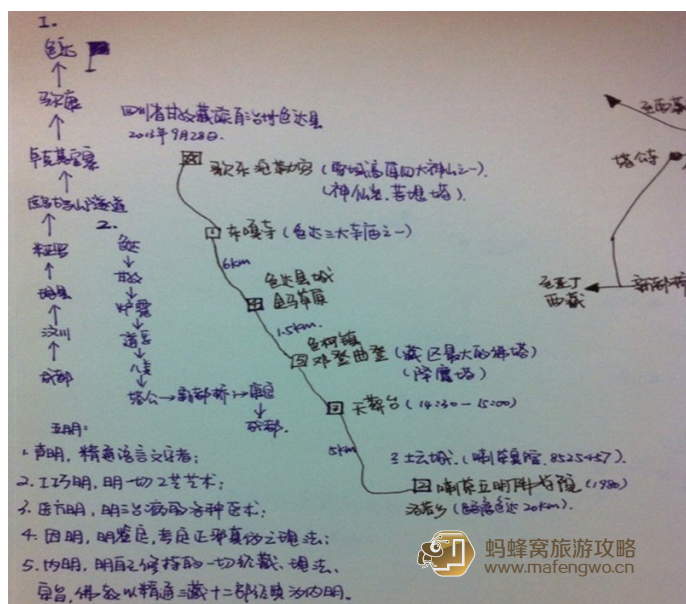 1.
色达
↑
马尔康
↑
卓克基官寨
↑
鹧鸪山隧道
↑
米亚罗
↑
理县
↑
汶川
↑
成都
2.
色达
↓
甘孜
↓
炉霍
↓
道孚
↓
八美
↓
塔公→新都桥→康定
↓
成都.
四川省甘孜藏族自治州色达县
2013年9月28日.
(雪域高原四大神山之一)
(神仙岩.苦堤塔)
东嘎寺(色达三大寺庙之一)
6km
色达县城
金马草原
1.5km.
色柯镇
邓登曲登(藏区最大的佛塔)
(降魔塔)
天葬台(14:30—15:00)
5km
土云城.(喇荣宾馆.8525457).
喇荣五明佛学院(1980)
洛若乡(距离色达20km).
至西藏
塔公寺
至亚丁
西藏
新都桥
五明:
1.声明,精通语言文字者;
2.工巧明,明一切工艺艺术;
3.医方明,明治病的各种医术;
4.因明,明鉴定,考定正邪真伪之理法;
5.内明,明自己修持的一切经藏、理法.
佛教以精通三藏十二部经典为内明.
蚂蜂窝旅游攻略
www.mafengwo.cn